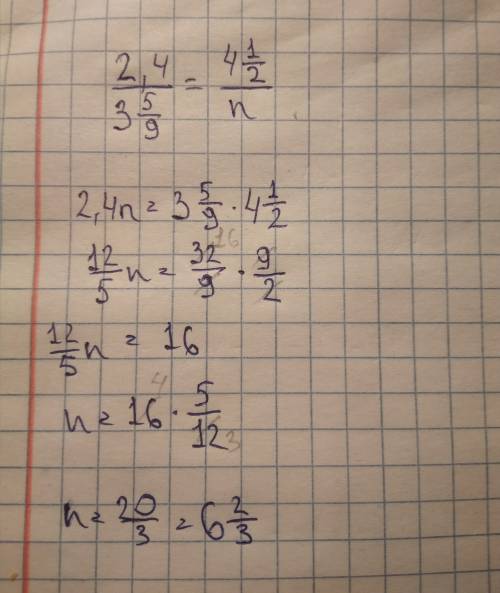 2,4 / 3 5/9 = 4 1/2 / n
2,4n = 3 5/9 · 4 1/2
12/5 n = 32/9 · 9/2 16
12/5 n = 16
n = 16 · 5/12 4 3
n = 20/3 = 6 2/3